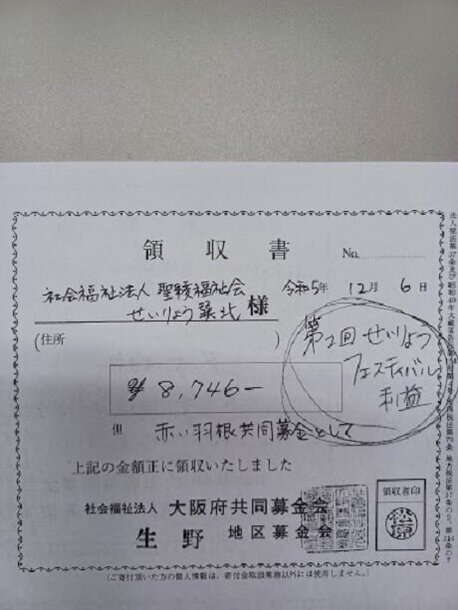 領収書 No.
社会福祉法人 聖稜福祉会 令和5年 12月 6日
せいりょう巽北 様
(住所 )
第2回 せいりょう
フェスティバル
利益
¥8,746-
但 赤い羽根共同募金として
上記の金額正に領収いたしました
社会福祉法人 大阪府共同募金会
生野 地区募金会
領収者印
(ご寄付頂いた方の個人情報は、寄付金取扱業務以外には使用しません。)